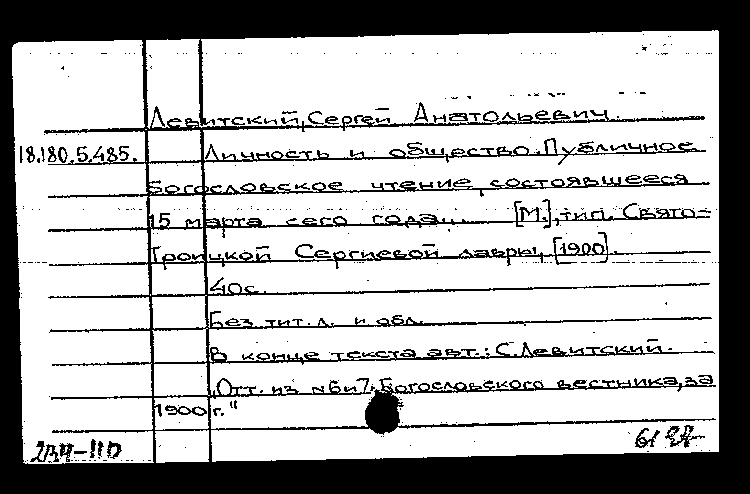 Левитский, Сергей Анатольевич.
18.180.5.485. Личность и общество. Публичное
богословское чтение, состоявшееся
15 марта сего года... [М.], тип. Свято-
Троицкой Сергиевой лавры, [1900].
40с.
Без тит. л. и обл.
В конце текста авт.: С. Левитский.
„Отт. из №6и7. Богословского вестника, за
1900 г."